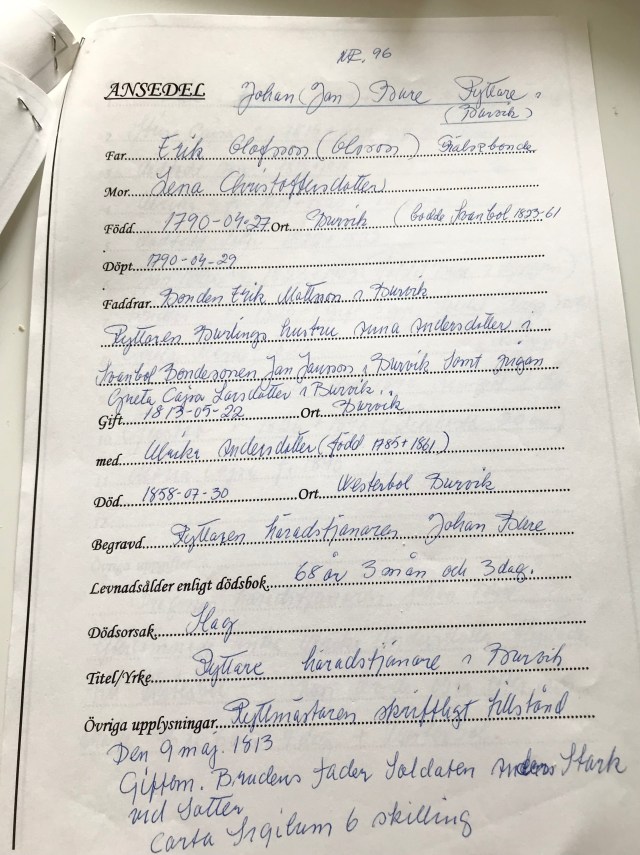 NR. 96
ANSEDEL Johan (Jan) Bure Ryttare i
(Burvik)
Far Erik Olofsson (Olsson) Frälsebonde
Mor Lena Christoffersdotter
Född 1790-04-27 Ort Burvik (bodde Svanbol 1823-61
Döpt 1790-04-29
Faddrar Bonden Erik Mattsson i Burvik
Ryttaren Burlings hustru Anna Andersdotter i
Svanbol Bondesonen Jan Jansson i Burvik samt pigan
Greta Cajsa Larsdotter i Burvik.
Gift 1813-05-22 Ort Burvik
med Ulrika Andersdotter (född 1785 + 1861)
Död 1858-07-30 Ort Westerbol Burvik
Begravd Ryttaren häradstjänaren Johan Bure
Levnadsålder enligt dödsbok 68 år 3 mån och 3 dag.
Dödsorsak Slag
Titel/Yrke Ryttare häradstjänare i Burvik
Övriga upplysningar Ryttmästaren skriftligt tillstånd
Den 9 maj. 1813
Giftom. Brudens fader Soldaten Anders Stark
vid Sätter
Carta Sigilum 6 skilling